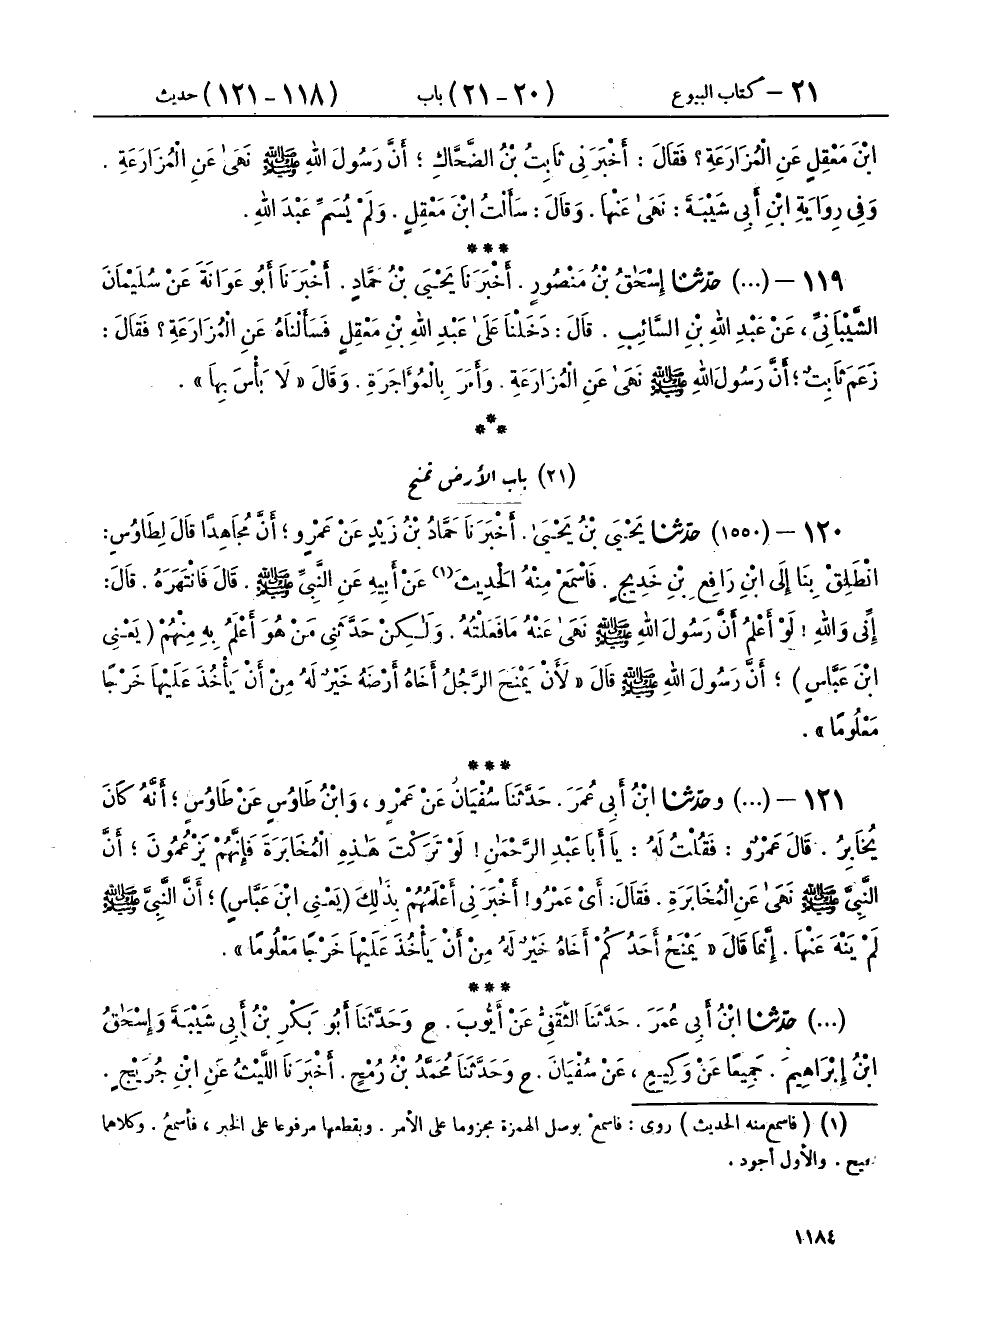 ٢١ – كتاب البيوع (٢٠ – ٢١) باب (١١٨ – ١٢١) حديث
ابْنَ مَعْقِلٍ عَنِ الْمُزَارَعَةِ؟ فَقَالَ : أَخْبَرَنِي ثَابِتُ بْنُ الضَّحَّاكِ ؛ أَنَّ رَسُولَ اللهِ ﷺ نَهَىٰ عَنِ الْمُزَارَعَةِ .
وَفِي رِوَايَةِ ابْنِ أَبِي شَيْبَةَ : نَهَىٰ عَنْهَا . وَقَالَ : سَأَلْتُ ابْنَ مَعْقِلٍ . وَلَمْ يُسَمِّ عَبْدَ اللهِ.
***
١١٩ – (...) حدّثنا إِسْحَٰقُ بْنُ مَنْصُورٍ . أَخْبَرَنَا يَحْيَىٰ بْنُ حَمَّادٍ . أَخْبَرَنَا أَبُو عَوَانَةَ عَنْ سُلَيْمَانَ
الشَّيْبَانِيِّ ، عَنْ عَبْدِ اللهِ بْنِ السَّائِبِ . قَالَ : دَخَلْنَا عَلَىٰ عَبْدِ اللهِ بْنِ مَعْقِلٍ فَسَأَلْنَاهُ عَنِ الْمُزَارَعَةِ؟ فَقَالَ :
زَعَمَ ثَابِتٌ ؛ أَنَّ رَسُولَ اللهِ ﷺ نَهَىٰ عَنِ الْمُزَارَعَةِ . وَأَمَرَ بِالْمُؤَاجَرَةِ . وَقَالَ « لَا بَأْسَ بِهَا » .
***
(٢١) باب الأرض تمنح
١٢٠ – (١٥٥٠) حدّثنا يَحْيَىٰ بْنُ يَحْيَىٰ . أَخْبَرَنَا حَمَّادُ بْنُ زَيْدٍ عَنْ عَمْرٍو ؛ أَنَّ مُجَاهِدًا قَالَ لِطَاوُسٍ:
انْطَلِقْ بِنَا إِلَى ابْنِ رَافِعِ بْنِ خَدِيجٍ . فَاسْمَعْ مِنْهُ الْحَدِيثَ (١) عَنْ أَبِيهِ عَنِ النَّبِيِّ ﷺ . قَالَ فَانْتَهَرَهُ . قَالَ:
إِنِّي وَاللهِ ! لَوْ أَعْلَمُ أَنَّ رَسُولَ اللهِ ﷺ نَهَىٰ عَنْهُ مَا فَعَلْتُهُ . وَلَٰكِنْ حَدَّثَنِي مَنْ هُوَ أَعْلَمُ بِهِ مِنْهُمْ (يَعْنِي
ابْنَ عَبَّاسٍ ) ؛ أَنَّ رَسُولَ اللهِ ﷺ قَالَ « لَأَنْ يَمْنَحَ الرَّجُلُ أَخَاهُ أَرْضَهُ خَيْرٌ لَهُ مِنْ أَنْ يَأْخُذَ عَلَيْهَا خَرْجًا
مَعْلُومًا » .
***
١٢١ – (...) وحدّثنا ابْنُ أَبِي عُمَرَ . حَدَّثَنَا سُفْيَانُ عَنْ عَمْرٍو ، وَابْنُ طَاوُسٍ عَنْ طَاوُسٍ ؛ أَنَّهُ كَانَ
يُخَابِرُ . قَالَ عَمْرٌو : فَقُلْتُ لَهُ : يَا أَبَا عَبْدِ الرَّحْمَٰنِ ! لَوْ تَرَكْتَ هَٰذِهِ الْمُخَابَرَةَ فَإِنَّهُمْ يَزْعُمُونَ ؛ أَنَّ
النَّبِيَّ ﷺ نَهَىٰ عَنِ الْمُخَابَرَةِ . فَقَالَ: أَيْ عَمْرُو! أَخْبَرَنِي أَعْلَمُهُمْ بِذَٰلِكَ (يَعْنِي ابْنَ عَبَّاسٍ) ؛ أَنَّ النَّبِيَّ ﷺ
لَمْ يَنْهَ عَنْهَا . إِنَّمَا قَالَ « يَمْنَحُ أَحَدُكُمْ أَخَاهُ خَيْرٌ لَهُ مِنْ أَنْ يَأْخُذَ عَلَيْهَا خَرْجًا مَعْلُومًا » .
***
(...) حدّثنا ابْنُ أَبِي عُمَرَ . حَدَّثَنَا الثَّقَفِيُّ عَنْ أَيُّوبَ . ح وَحَدَّثَنَا أَبُو بَكْرِ بْنُ أَبِي شَيْبَةَ وَإِسْحَٰقُ
ابْنُ إِبْرَاهِيمَ . جَمِيعًا عَنْ وَكِيعٍ ، عَنْ سُفْيَانَ . ح وَحَدَّثَنَا مُحَمَّدُ بْنُ رُمْحٍ . أَخْبَرَنَا اللَّيْثُ عَنِ ابْنِ جُرَيْجٍ .
(١) ( فاسمع منه الحديث ) روى : فاسمعْ بوصل الهمزة مجزوما على الأمر . وبقطعها مرفوعا على الخبر ، فأسمعُ . وكلاهما
صحيح . والأول أجود .
١١٨٤